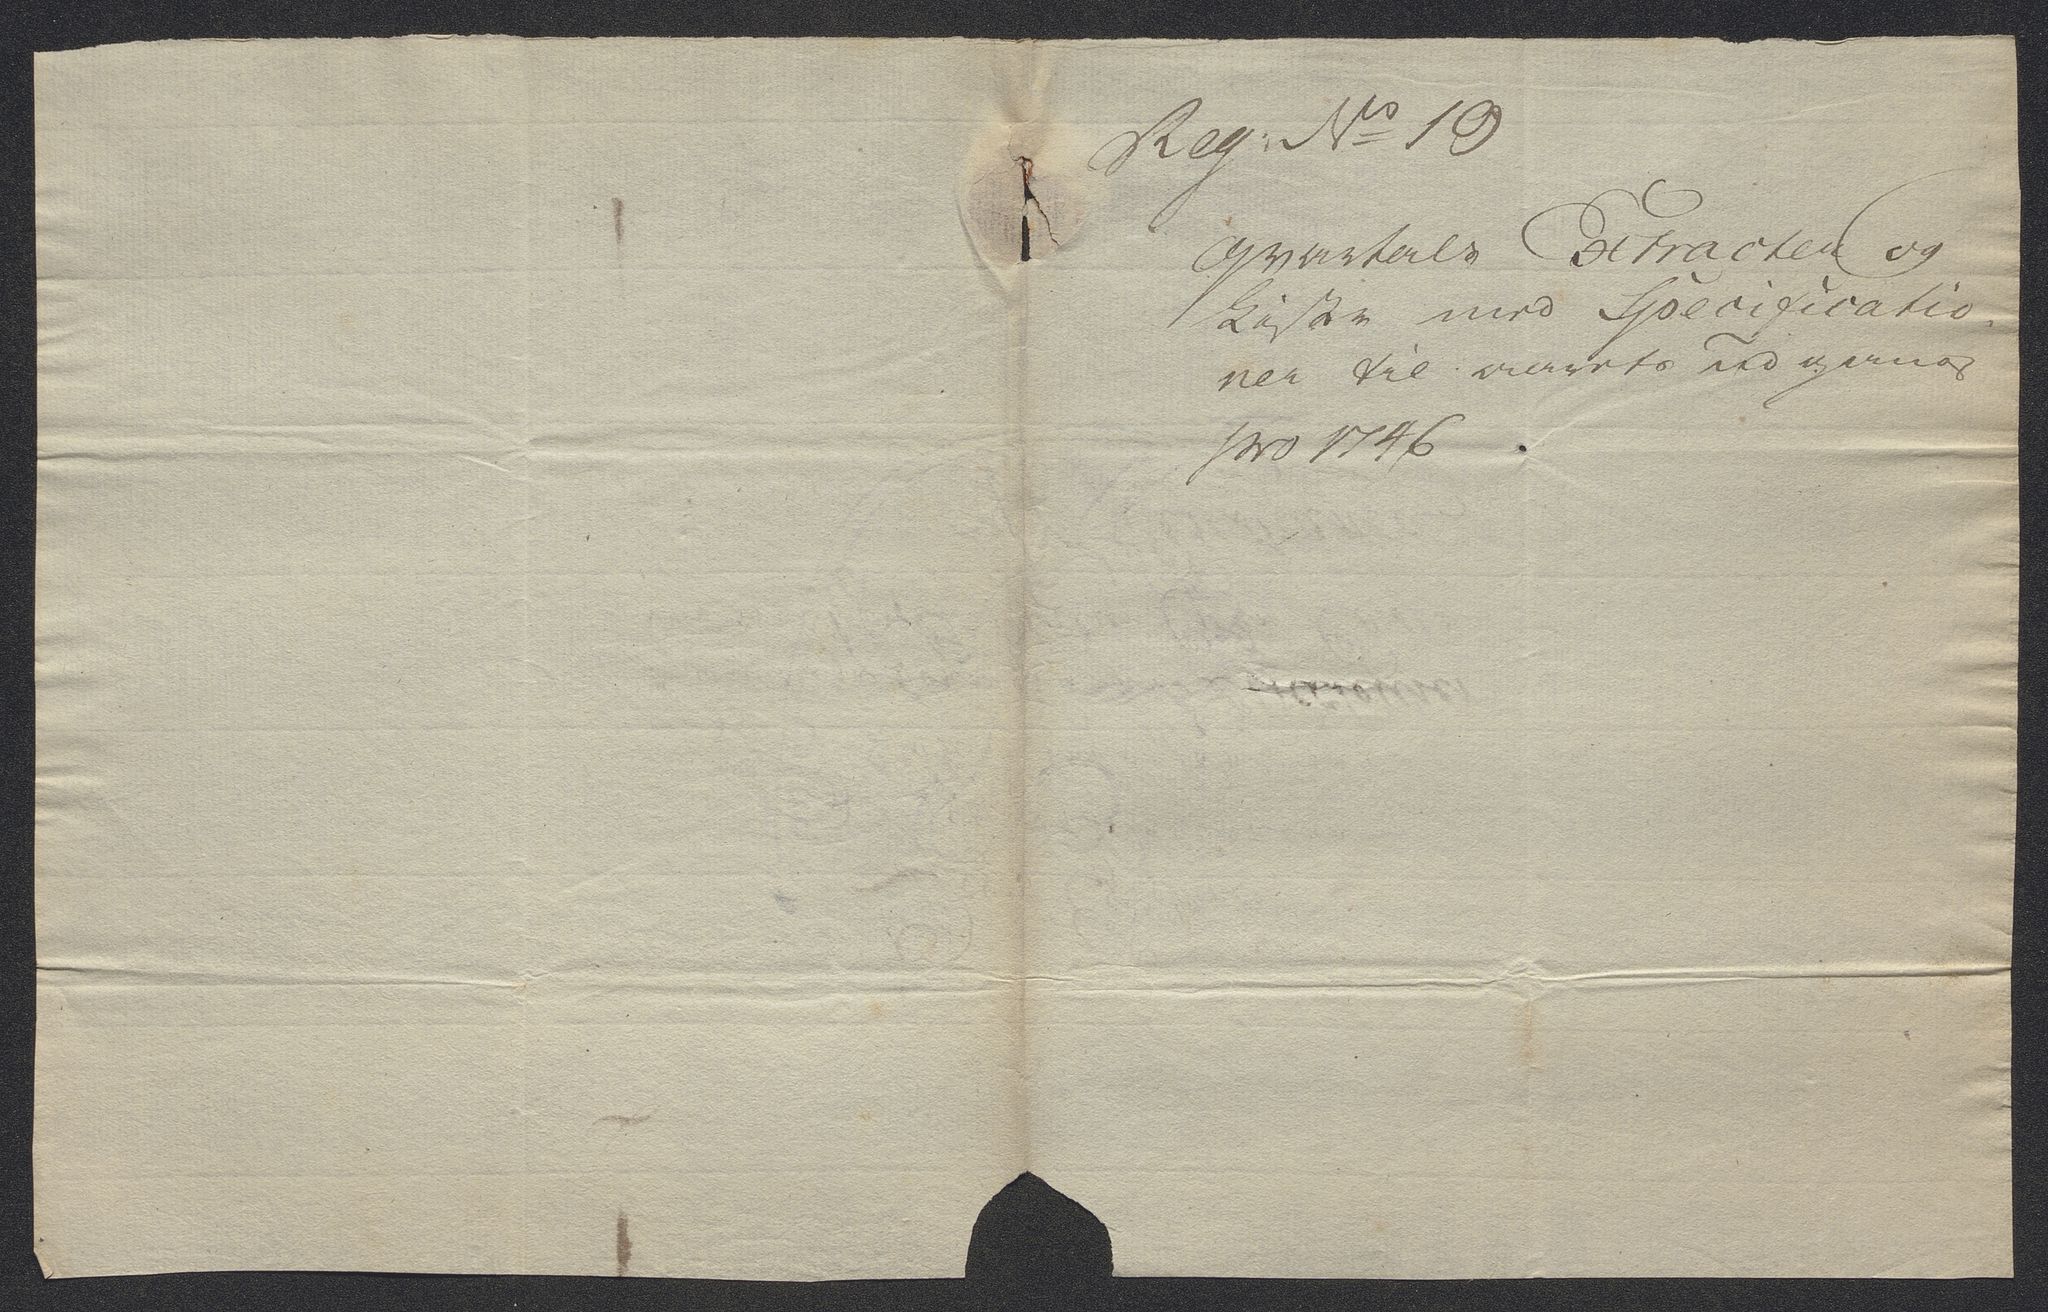 Reg: No 19
qvartals Extracter og
Liste med Specificatio¬
ner til aarets Udgang
pro 1746